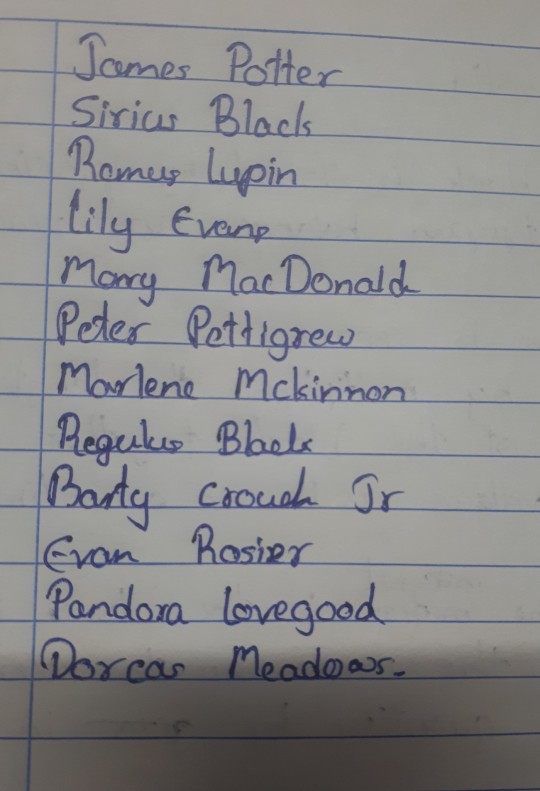 James Potter
Sirius Black
Remus Lupin
Lily Evans
Marry MacDonald
Peter Pettigrew
Marlene Mckinnon
Regulus Black
Barty Crouch Jr
Evan Rosier
Pandora Lovegood
Dorcas Meadows.